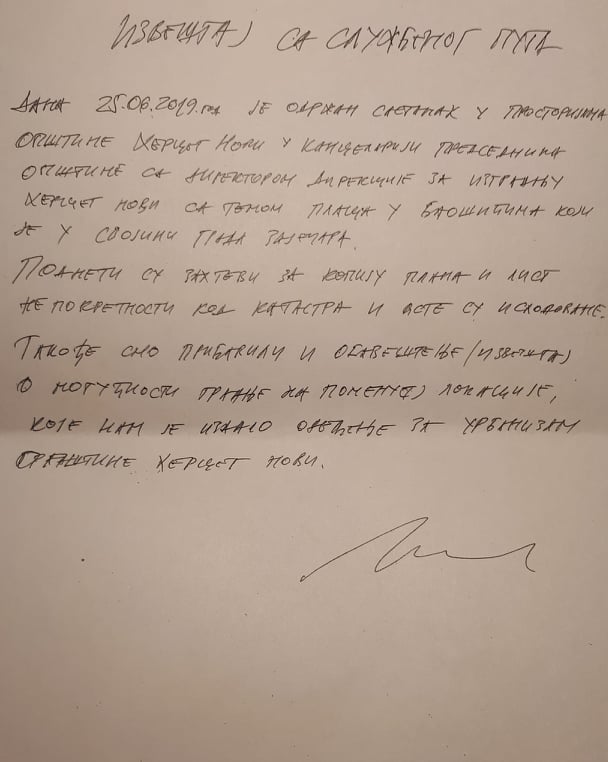 ИЗВЕШТАЈ СА СЛУЖБЕНОГ ПУТА
ДАНА 25.06.2019.год ЈЕ ОДРЖАН САСТАНАК У ПРОСТОРИЈАМА
ОПШТИНЕ ХЕРЦЕГ НОВИ У КАНЦЕЛАРИЈИ ПРЕДСЕДНИКА
ОПШТИНЕ СА ДИРЕКТОРОМ ДИРЕКЦИЈЕ ЗА ИЗГРАДЊУ
ХЕРЦЕГ НОВИ СА ТЕМОМ ПЛАЦА У БАОШИЋИМА КОЈИ
ЈЕ У СВОЈИНИ ГРАДА ЗАЈЕЧАРА.
ПОДНЕТИ СУ ЗАХТЕВИ ЗА КОПИЈУ ПЛАНА И ЛИСТ
НЕПОКРЕТНОСТИ КОД КАТАСТРА И ИСТЕ СУ ИСХОДОВАНЕ.
ТАКОЂЕ СМО ПРИБАВИЛИ И ОБАВЕШТЕЊЕ/ИЗВЕШТАЈ
О МОГУЋНОСТИ ГРАДЊЕ НА ПОМЕНУТОЈ ЛОКАЦИЈЕ,
КОЈЕ НАМ ЈЕ ИЗДАЛО ОДЕЉЕЊЕ ЗА УРБАНИЗАМ
ОПШТИНЕ ХЕРЦЕГ НОВИ.